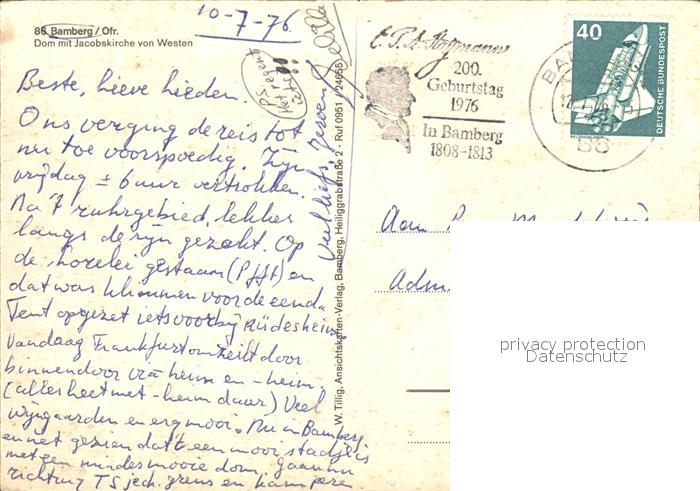 86 Bamberg/Ofr.
Dom mit Jacobskirche von Westen
10-7-76
PS
Het regent
Beste, lieve lieden.
Ons verging de reis tot
nu toe voorspoedig. Zijn
vrijdag ± 6 uur vertrokken.
Na 't ruhrgebied, lekker
langs de rijn gezakt. Op
de Lorelei gestaan (Pfft) en
dat was klimmen voor de eend.
Tent opgezet iets voorbij Rüdesheim
Vandaag Frankfurt omzeild door
binnendoor via heim en -heim.
(alles heet met -heim daar) Veel
wijngaarden en erg mooi. Nu in Bamberg
en net gezien dat 't een mooi stadje is
met een minder mooie dom. Gaan nu
richting Tsjech. grens en kamperen
Veel liefs, Jeroen
W. Tillig, Ansichtskarten-Verlag, Bamberg, Heiliggrabstraße 2 - Ruf 0951 / 24655
E.T.A. Hoffmann
200.
Geburtstag
1976
In Bamberg
1808-1813
BA
86
40
DEUTSCHE BUNDESPOST
Aan
Adm
privacy protection
Datenschutz